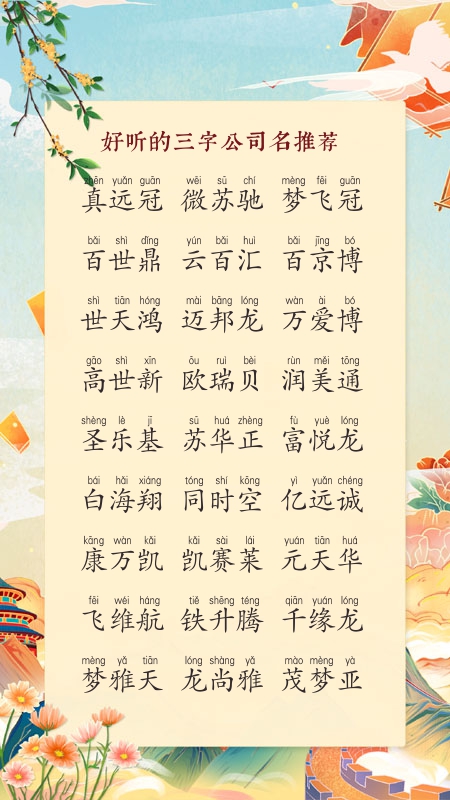 好听的三字公司名推荐
zhēn yuǎn guān wēi sū chí mèng fēi guān
真远冠 微苏驰 梦飞冠
bǎi shì dǐng yún bǎi huì bǎi jīng bó
百世鼎 云百汇 百京博
shì tiān hóng mài bāng lóng wàn ài bó
世天鸿 迈邦龙 万爱博
gāo shì xīn ōu ruì bèi rùn měi tōng
高世新 欧瑞贝 润美通
shèng lè jī sū huá zhèng fù yuè lóng
圣乐基 苏华正 富悦龙
bái hǎi xiáng tóng shí kōng yì yuǎn chéng
白海翔 同时空 亿远诚
kāng wàn kǎi kǎi sài lái yuán tiān huá
康万凯 凯赛莱 元天华
fēi wéi háng tiě shēng téng qiān yuán lóng
飞维航 铁升腾 千缘龙
mèng yǎ tiān lóng shàng yǎ mào mèng yà
梦雅天 龙尚雅 茂梦亚